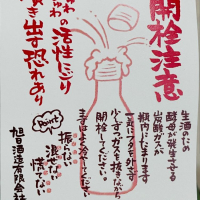 開栓注意
しゅわしゅわの活性にごり
噴き出す恐れあり
生酒のため
酵母が発生する
炭酸ガスが
瓶内にたまります
一気にフタを外さず
少しずつガスを抜きながら
開栓してください。
まずはよく冷やしてください
Point
振らない
混ぜない
慌てない
旭日酒造有限会社